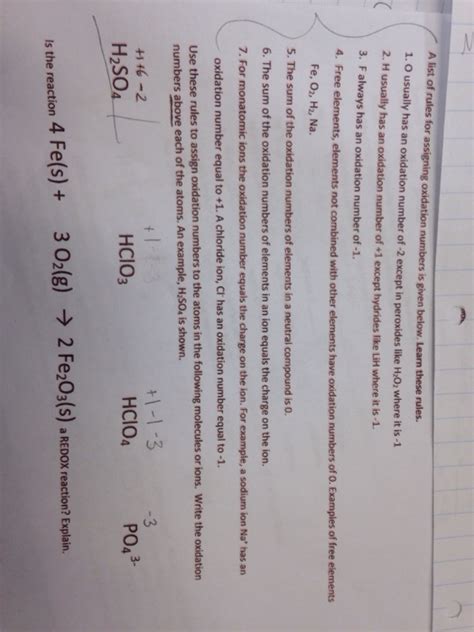 A list of rules for assigning oxidation numbers is given below. Learn these rules.
1. O usually has an oxidation number of -2 except in peroxides like H₂O₂ where it is -1
2. H usually has an oxidation number of +1 except hydrides like LiH where it is -1.
3. F always has an oxidation number of -1.
4. Free elements, elements not combined with other elements have oxidation numbers of 0. Examples of free elements
Fe, O₂, H₂, Na.
5. The sum of the oxidation numbers of elements in a neutral compound is 0.
6. The sum of the oxidation numbers of elements in an ion equals the charge on the ion.
7. For monatomic ions the oxidation number equals the charge on the ion. For example, a sodium ion Na⁺ has an
oxidation number equal to +1. A chloride ion, Cl⁻ has an oxidation number equal to -1.
Use these rules to assign oxidation numbers to the atoms in the following molecules or ions. Write the oxidation
numbers above each of the atoms. An example, H₂SO₄ is shown.
+1 +6 -2 +1 +1 -1 -3 -3
H₂SO₄ HClO₃ HClO₄ PO₄³⁻
Is the reaction 4 Fe(s) + 3 O₂(g) → 2 Fe₂O₃(s) a REDOX reaction? Explain.